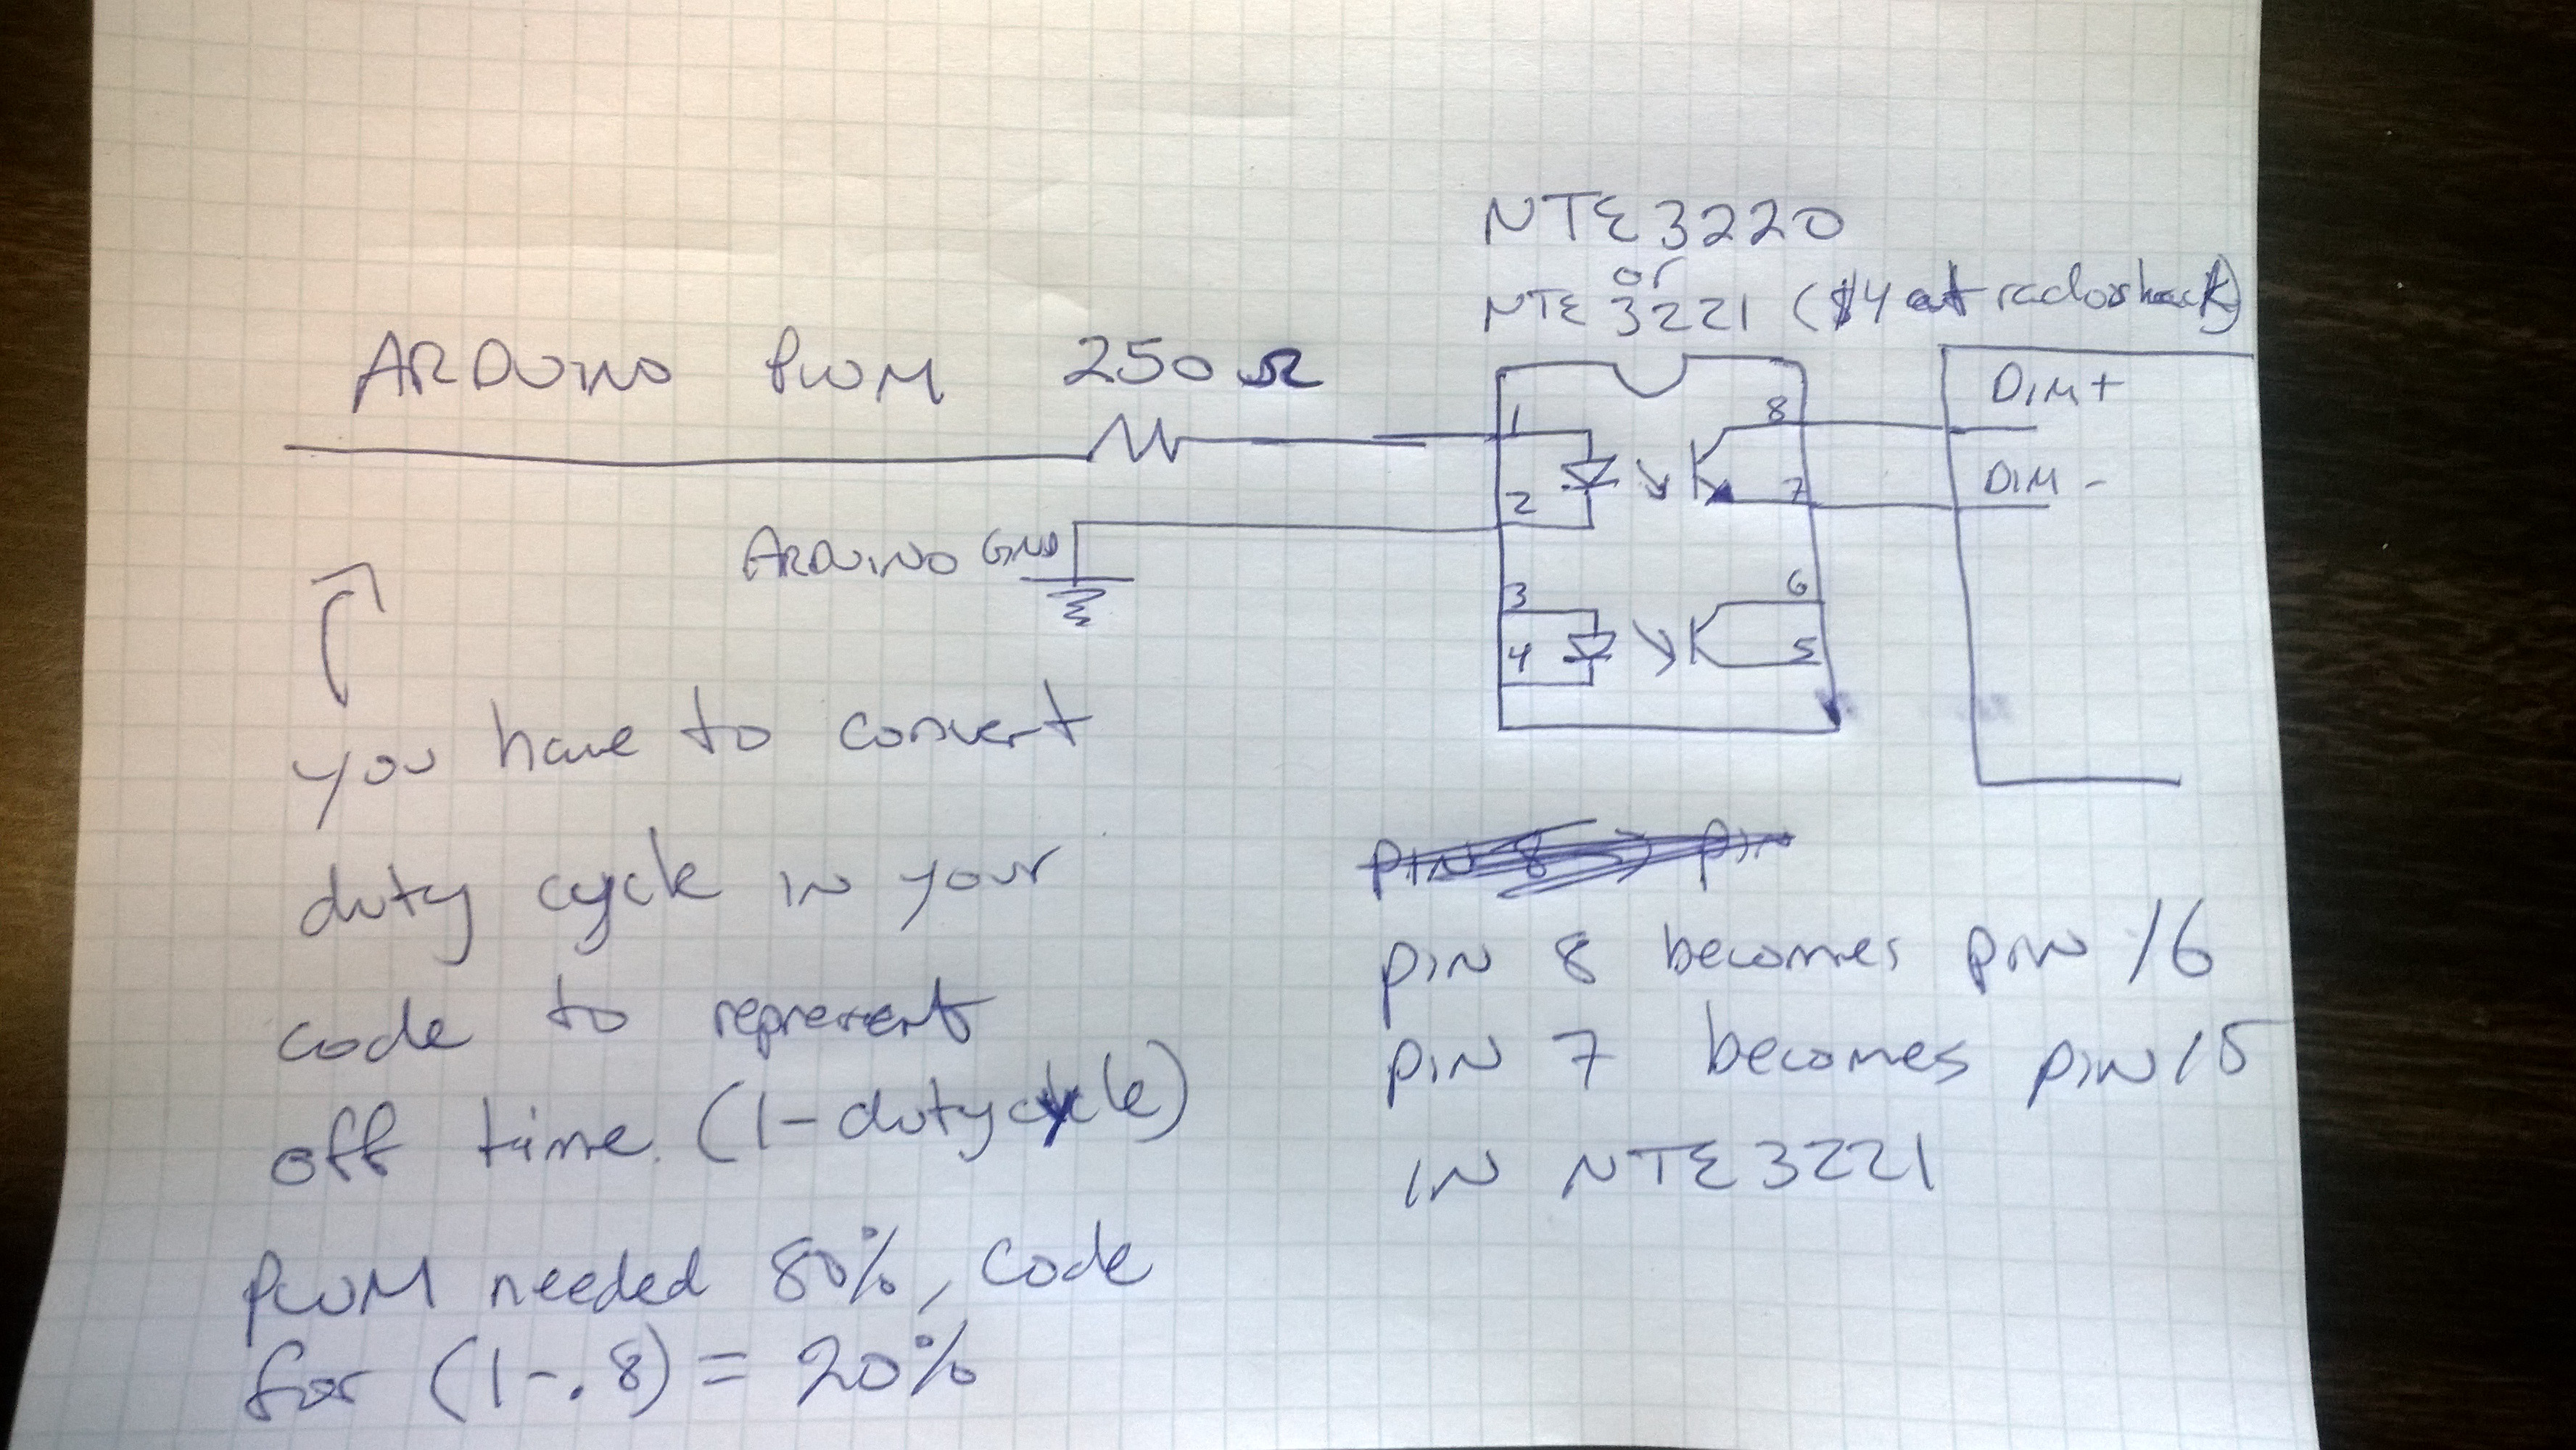 NTE3220
or
NTE 3221 ($4 at radioshack)
ARDUINO PWM 250Ω
DIM+
DIM -
1
8
2
7
ARDUINO GND
3
6
4
5
you have to convert
duty cycle in your
code to represent
off time. (1-dutycycle)
PWM needed 80%, code
for (1-.8) = 20%
PIN 8 → PIN
PIN 8 becomes PIN 16
PIN 7 becomes PIN 15
IN NTE3221